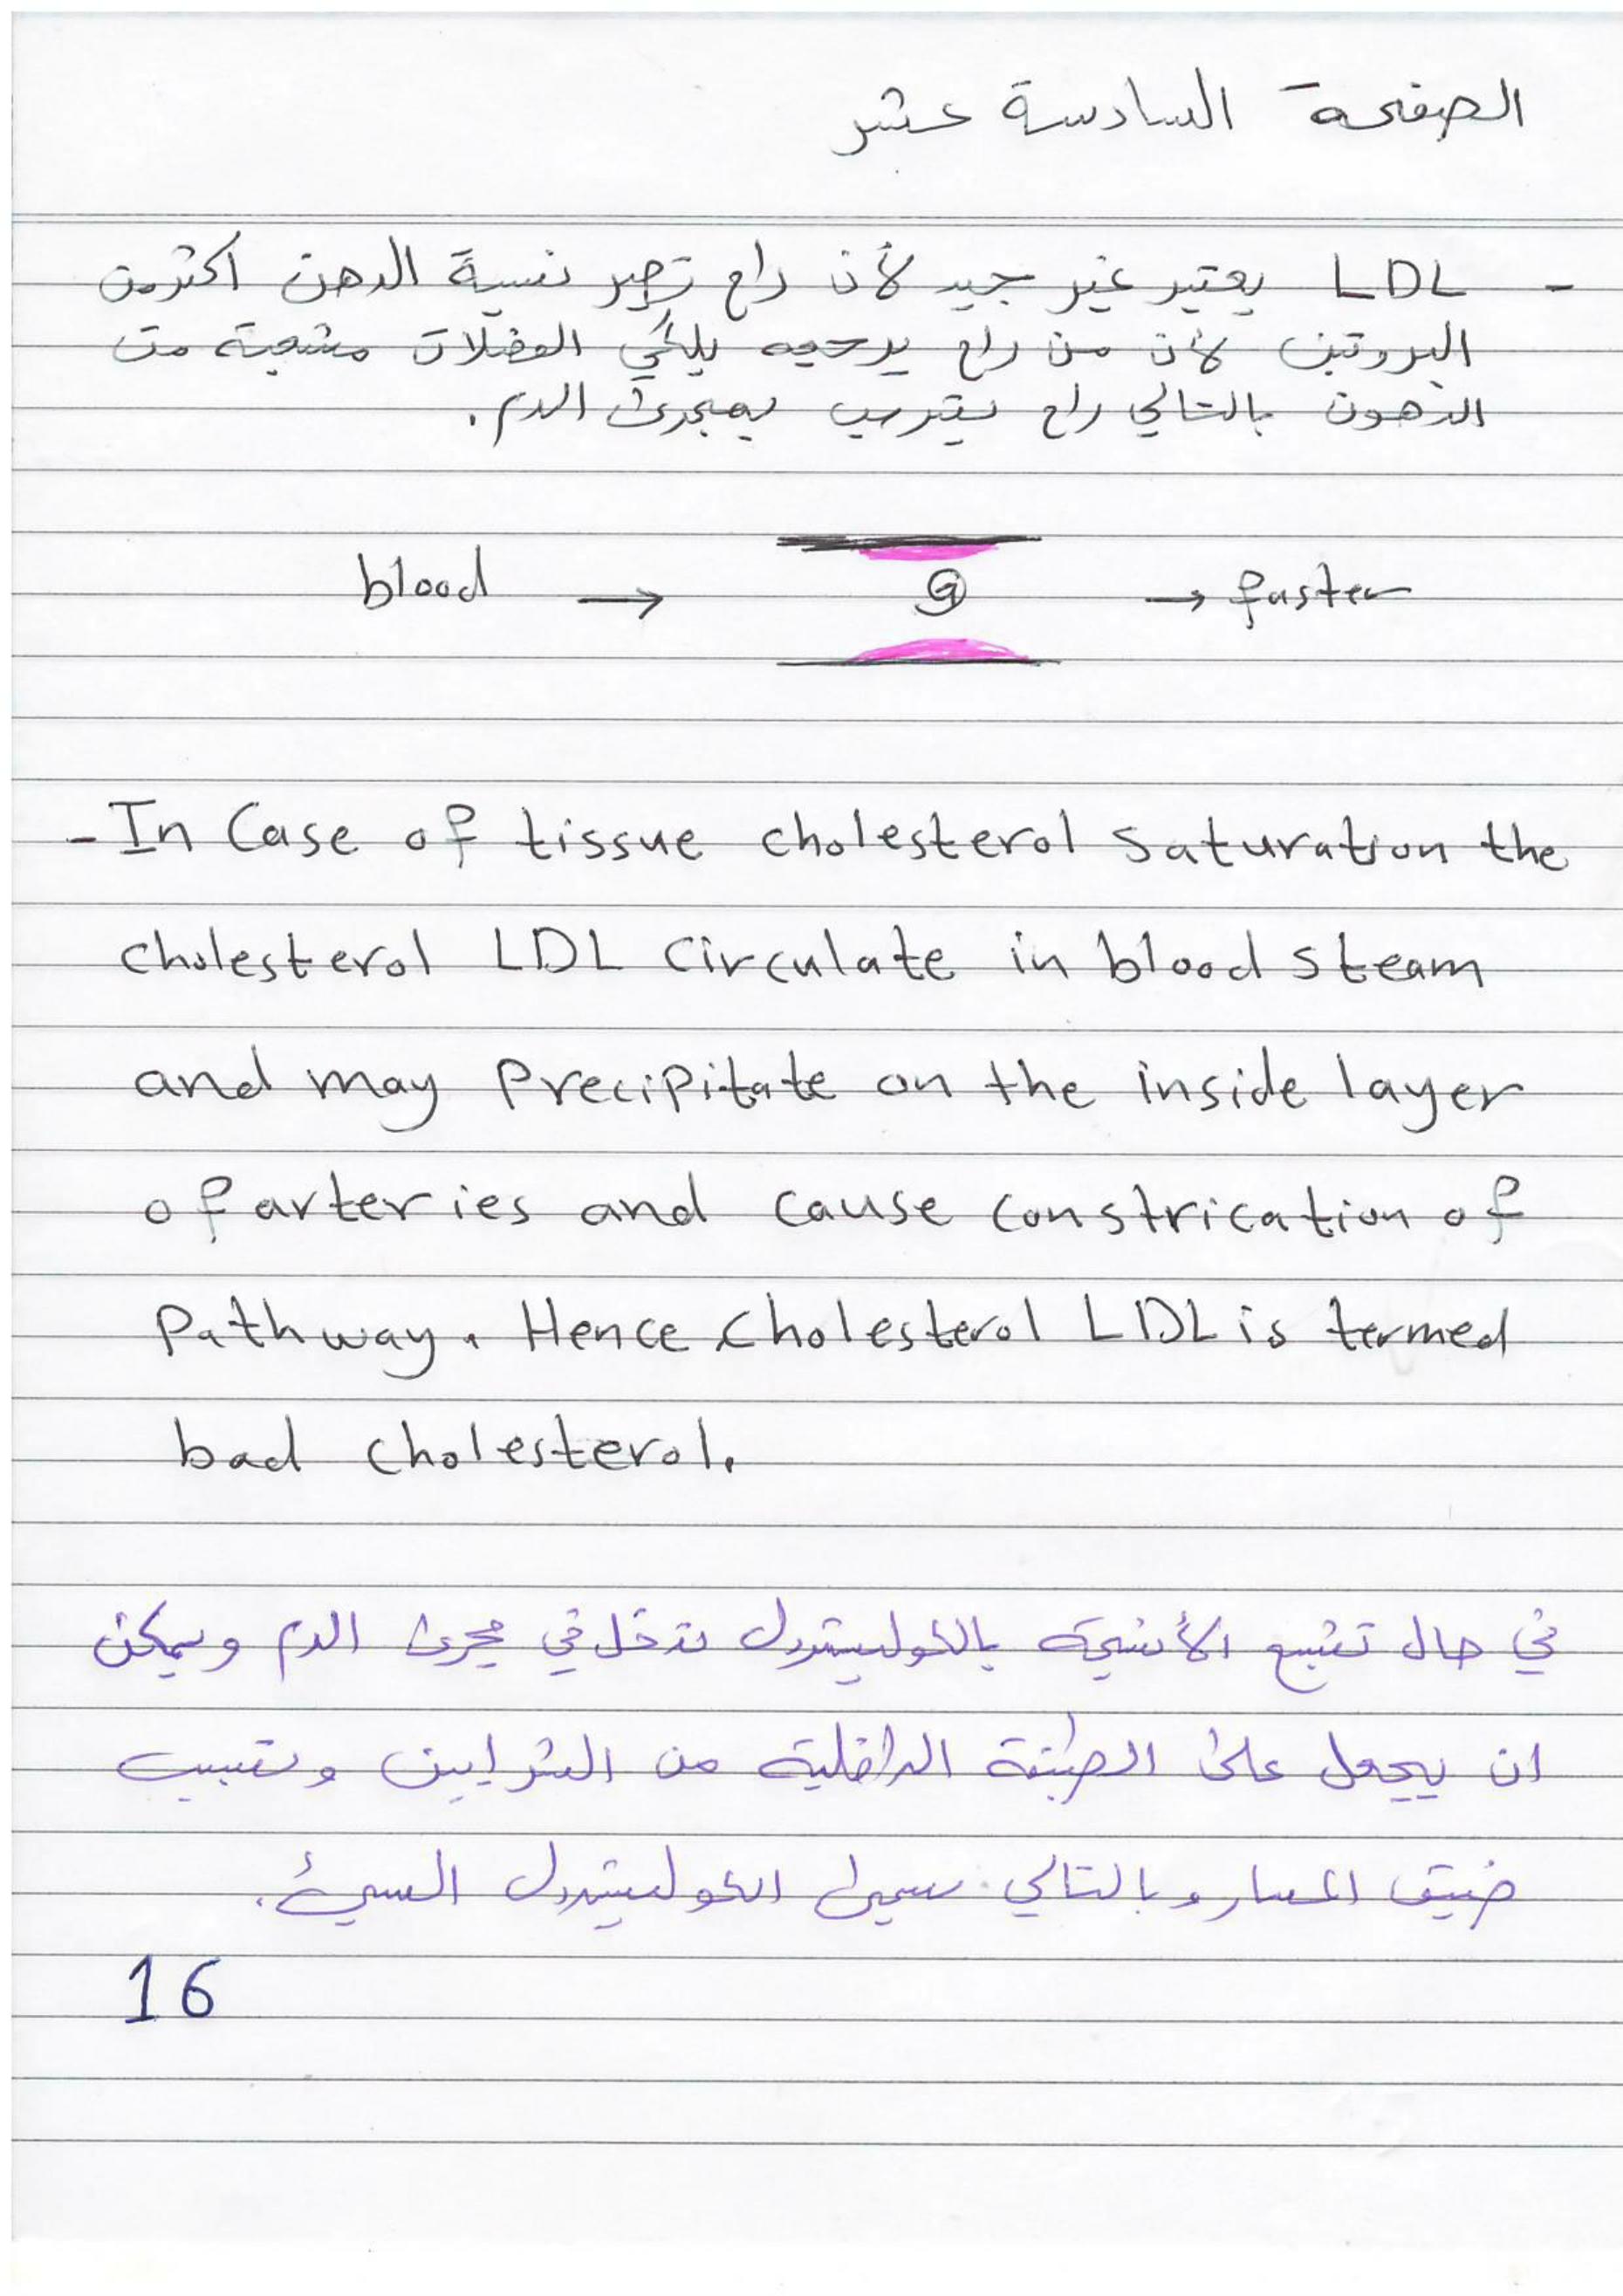 الصفحة السادسة عشر
- LDL يعتبر غير جيد لأن راح تصير نسبة الدهن اكثر من
البروتين لأن من راح يرجع يلكي العضلات مشبعة من
الدهون بالتالي راح يترسب بمجرى الدم.
blood → → faster
- In Case of tissue cholesterol saturation the
cholesterol LDL circulate in blood steam
and may precipitate on the inside layer
of arteries and cause constrication of
pathway. Hence cholesterol LDL is termed
bad cholesterol.
في حال تشبع الأنسجة بالكوليسترول تدخل في مجرى الدم ويمكن
ان يجعل على الطبقة الداخلية من الشرايين وتسبب
ضيق المسار وبالتالي سمي الكوليسترول السيئ.
16